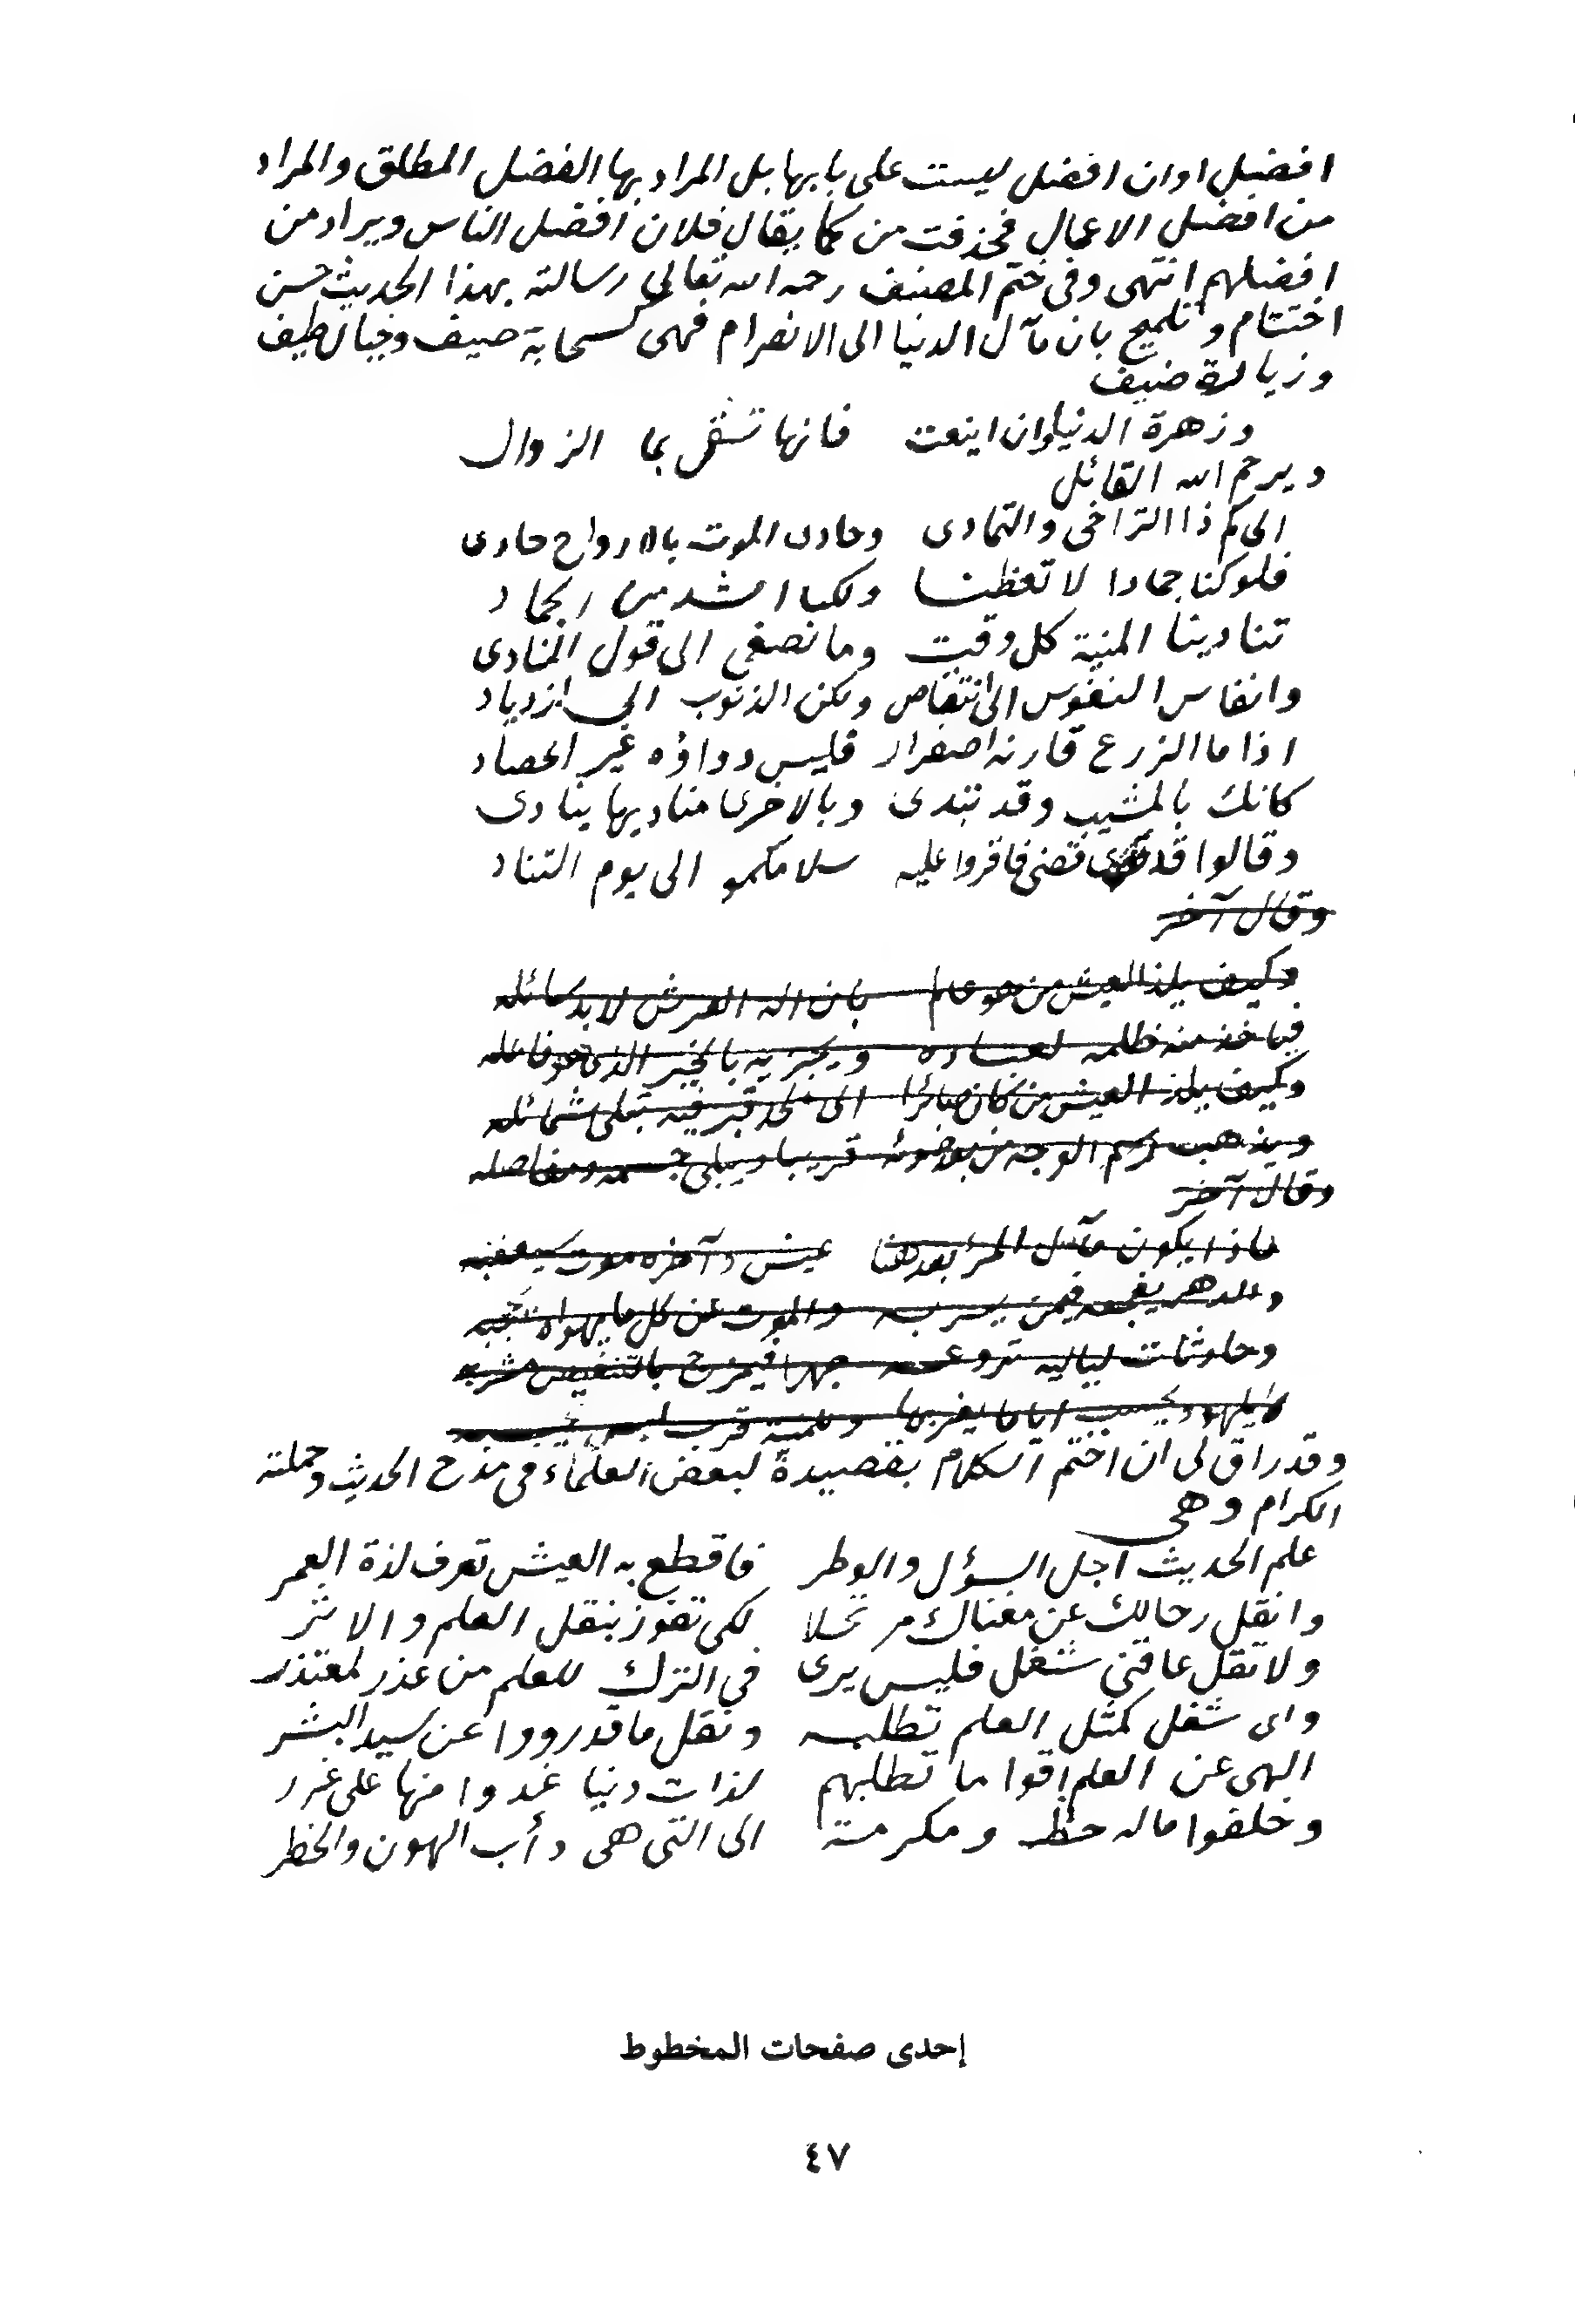 افضل او ان افضل ليست على بابها بل المراد بها الفضل المطلق والمراد
من افضل الاعمال فحذفت من كما يقال فلان افضل الناس ويراد من
افضلهم انتهى وفى ختم المصنف رحمه الله تعالى رسالته بهذا الحديث حسن
اختتام وتلميح بان مآل الدنيا الى الانصرام فهى كسحابة صيف وخيال طيف
وزيارة ضيف
وزهرة الدنيا وان اينعت فانها تسقى بما الزوال
ويرحم الله القائل
الى كم ذا التراخى والتمادى وحادى الموت بالارواح حادى
فلو كنا جمادا لاتعظنا ولكنا اشد من الجماد
تنادينا المنية كل وقت وما نصغى الى قول المنادى
وانفاس النفوس الى انتقاص ولكن الذنوب الى ازدياد
اذا ما الزرع قارنه اصفرار فليس دواؤه غير الحصاد
كانك بالمشيب وقد تبدى وبالاخرى مناديها ينادى
وقالوا قد قضى فاقروا عليه سلامكمو الى يوم التناد
وقال آخر
وكيف يلذ العيش من هو عالم بان اله العرش لا بد سائله
فياخذ منه ظلمه لعباده ويجزيه بالخير الذى هو فاعله
وكيف يلذ العيش من كان صائرا الى لحد قبر فيه تبلى شمائله
ويذهب رسم الوجه من بعد ضوئه قريبا ويبلى جسمه ومفاصله
وقال آخر
ماذا يكون مآل المرء بعد هنا عيش وآخره موت
والدهر يفجعه فيمن يسر به والموت عن كل ما يهواه
وحادثات لياليه تروعه جهرا فيمزج بالتنغيص مشربه
يلهو ويحسب اياما يفر بها وللمنية قرب ليس
وقد راق لى ان اختم الكلام بقصيدة لبعض العلماء فى مدح الحديث وحملته
الكرام وهى
علم الحديث اجل السؤل والوطر فاقطع به العيش تعرف لذة العمر
وانقل رحالك عن مغناك مرتحلا لكى تفوز بنقل العلم والاثر
ولا تقل عاقنى شغل فليس يرى فى الترك للعلم من عذر لمعتذر
واى شغل كمثل العلم تطلبه ونقل ما قد رووا عن سيد البشر
الهى عن العلم اقواما تطلبهم لذات دنيا غدوا منها على غرر
وخلفوا ماله حظ ومكرمة الى التى هى دأب الهون والخطر
إحدى صفحات المخطوط
٤٧